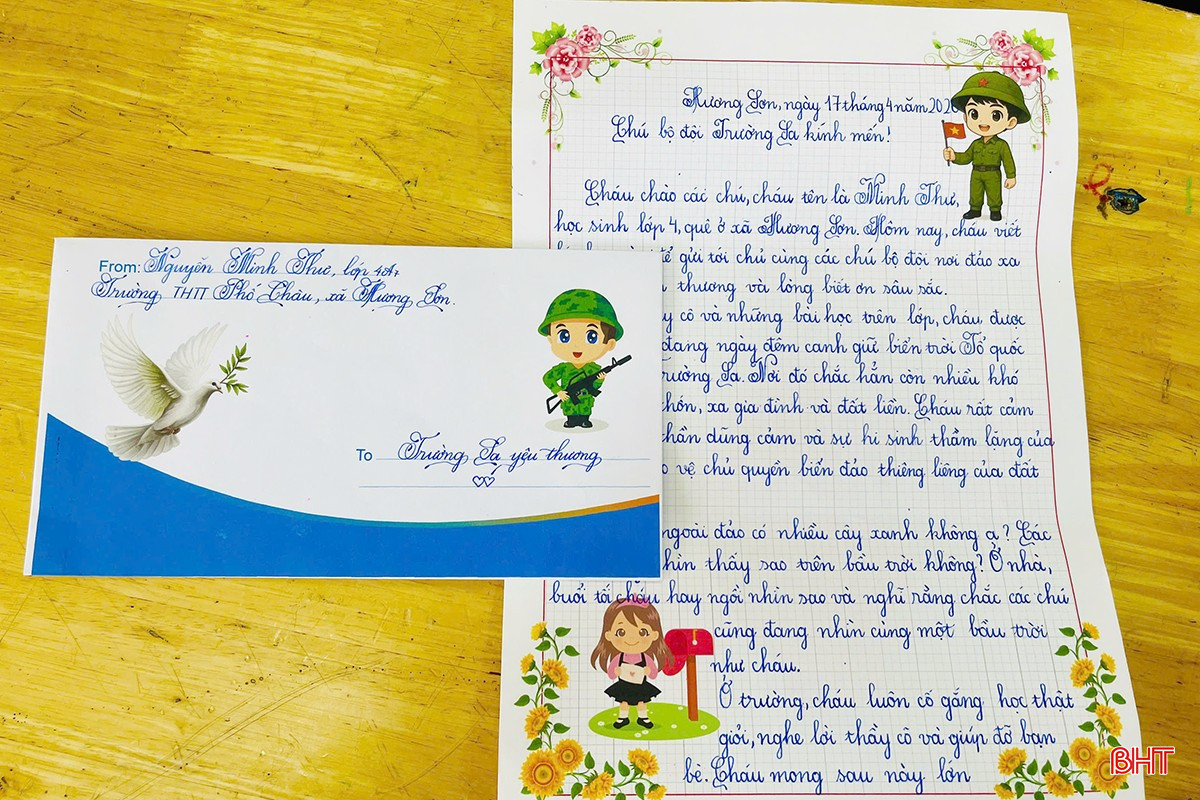 From: Nguyễn Minh Thư, lớp 4A7
Trường THTT Phố Châu, xã Hương Sơn.
To Trường Sa yêu thương
Hương Sơn, ngày 17 tháng 4 năm 202
Chú bộ đội Trường Sa kính mến!
Cháu chào các chú, cháu tên là Minh Thư,
học sinh lớp 4, quê ở xã Hương Sơn. Hôm nay, cháu viết
để gửi tới chú cùng các chú bộ đội nơi đảo xa
thương và lòng biết ơn sâu sắc.
cô và những bài học trên lớp, cháu được
đang ngày đêm canh giữ biển trời Tổ quốc
Trường Sa. Nơi đó chắc hẳn còn nhiều khó
thốn, xa gia đình và đất liền. Cháu rất cảm
thần dũng cảm và sự hi sinh thầm lặng của
vệ chủ quyền biển đảo thiêng liêng của đất
ngoài đảo có nhiều cây xanh không ạ? Các
nhìn thấy sao trên bầu trời không? Ở nhà,
buổi tối cháu hay ngồi nhìn sao và nghĩ rằng chắc các chú
cũng đang nhìn cùng một bầu trời
như cháu.
Ở trường, cháu luôn cố gắng học thật
giỏi, nghe lời thầy cô và giúp đỡ bạn
bè. Cháu mong sau này lớn
BHT